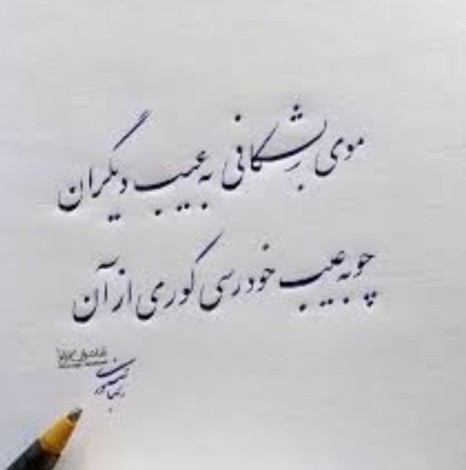 موی بشکافی به عیب دیگران
چو به عیب خود رسی کوری از آن